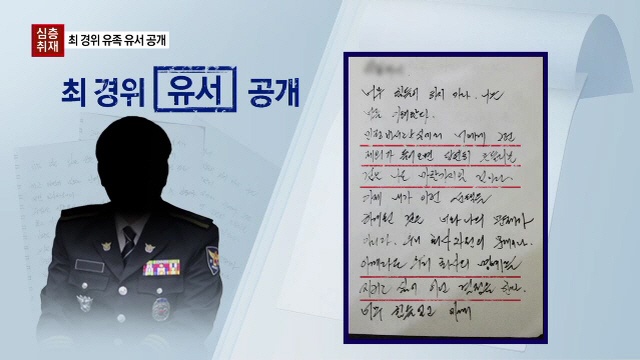 심층
취재
최 경위 유족 유서 공개
최 경위 유서 공개
너무 힘들어 하지 마라. 나는
너를 이해한다.
민정비서관실에서 너에게 그런
제의가 들어오면 당연히 흔들리는
것은 나도 마찬가지일 것이다.
이제 내가 이런 선택을
하게된 것은 너와 나의 문제가
아니다. 우리 회사 차원의 문제이나.
이제라도 우리 회사의 명예를
지키고 싶어 이런 결정을 한다.
너무 힘들었고 이제